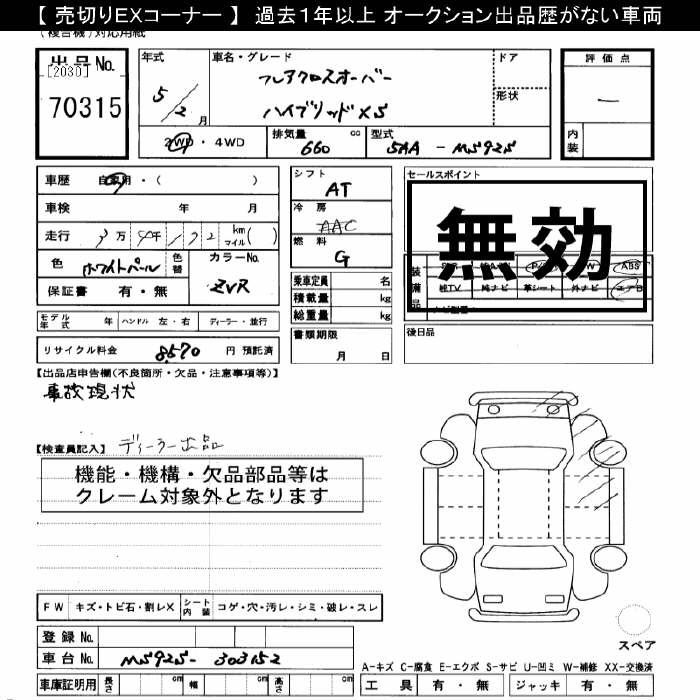 【 売切りEXコーナー 】 過去1年以上 オークション出品歴がない車両
(複合機)対応用紙
出品No.
[2030]
70315
年式
5/2月
車名・グレード
フレアクロスオーバー
ハイブリッドXS
ドア
形状
評価点
ー
内装
2WD・4WD
排気量 660 cc
型式 5AA - MS92S
車歴 自家用・( )
車検 年 月
走行 3万 4千 172 km マイル ( )
色 ホワイトパール
色替
カラーNo.
ZVR
保証書 有・無
シフト
AT
冷房
AAC
燃料
G
乗車定員 名
積載量 kg
総重量 kg
セールスポイント
無効
装備品
ABS
純TV 純ナビ 革シート 外ナビ エアB
モデル年式 年 ハンドル 左・右 ディーラー・並行
リサイクル料金 8570 円 預託済
書類期限
月 日
後日品
【出品店申告欄(不良箇所・欠品・注意事項等)】
事故現状
【検査員記入】 ディーラー出品
機能・機構・欠品部品等は
クレーム対象外となります
FW キズ・トビ石・割レX シート内装 コゲ・穴・汚レ・シミ・破レ・スレ
登録No.
車台No. MS92S- 303152
車庫証明用 長さ cm 幅 cm 高さ cm
スペア
A-キズ C-腐食 E-エクボ S-サビ U-凹ミ W-補修 XX-交換済
工具 有・無 ジャッキ 有・無